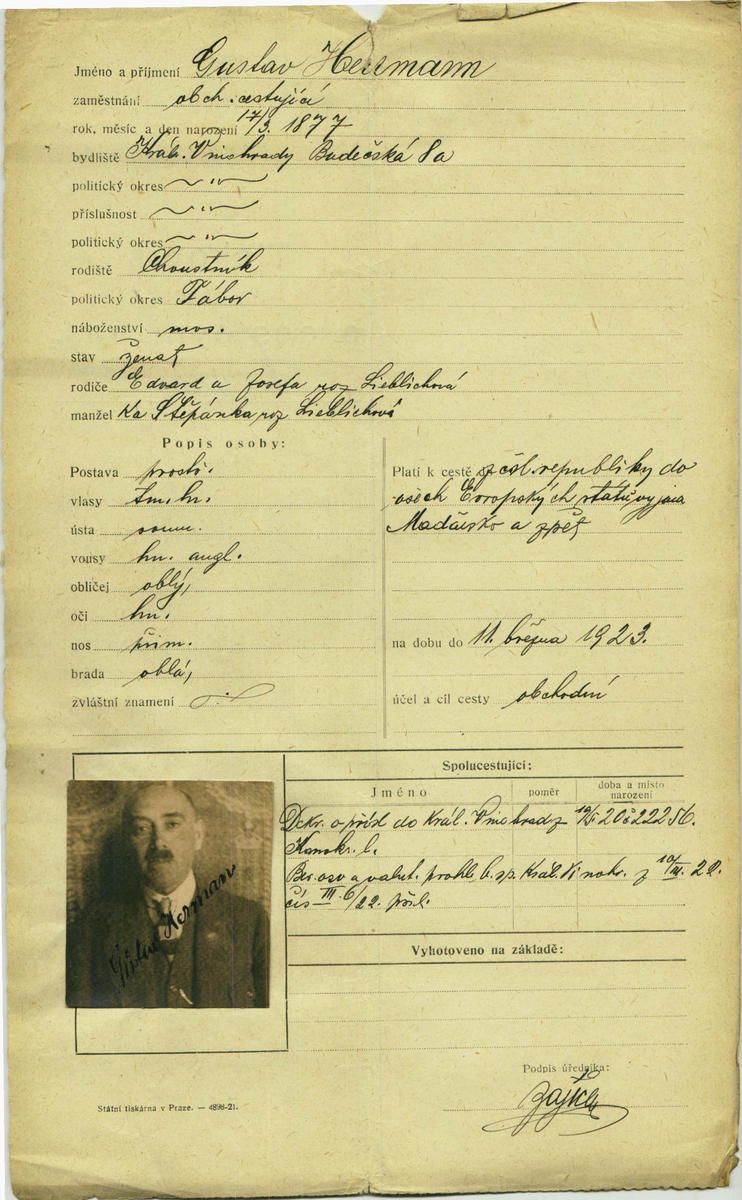 Jméno a příjmení Gustav Herrmann
zaměstnání obch. cestující
rok, měsíc a den narození 17/3. 1877
bydliště Král. Vinohrady Budečská 8a
politický okres — " —
příslušnost — " —
politický okres — " —
rodiště Choustník
politický okres Tábor
náboženství mos.
stav ženat
rodiče Edvard a Josefa roz Lieblichová
manžel ka Štěpánka roz Lieblichová
Popis osoby:
Postava prostř.
vlasy tm. hn.
ústa soum.
vousy hn. angl.
obličej oblý,
oči hn.
nos přim.
brada oblá,
zvláštní znamení
Platí k cestě z čsl. republiky do
všech Evropských států vyjma
Maďarsko a zpět
na dobu do 11. března 1923.
účel a cíl cesty obchodní
Spolucestující:
Jméno
poměr
doba a místo
narození
Dekr. o přísl do Král. Vinohrad z 20 č 22256.
Ber. osv a valut. prohl. b. sp. Král. Vinohr. z 10/III. 22.
čís III. 6/22. přil.
Vyhotoveno na základě:
Podpis úředníka:
Státní tiskárna v Praze. — 4898-21.